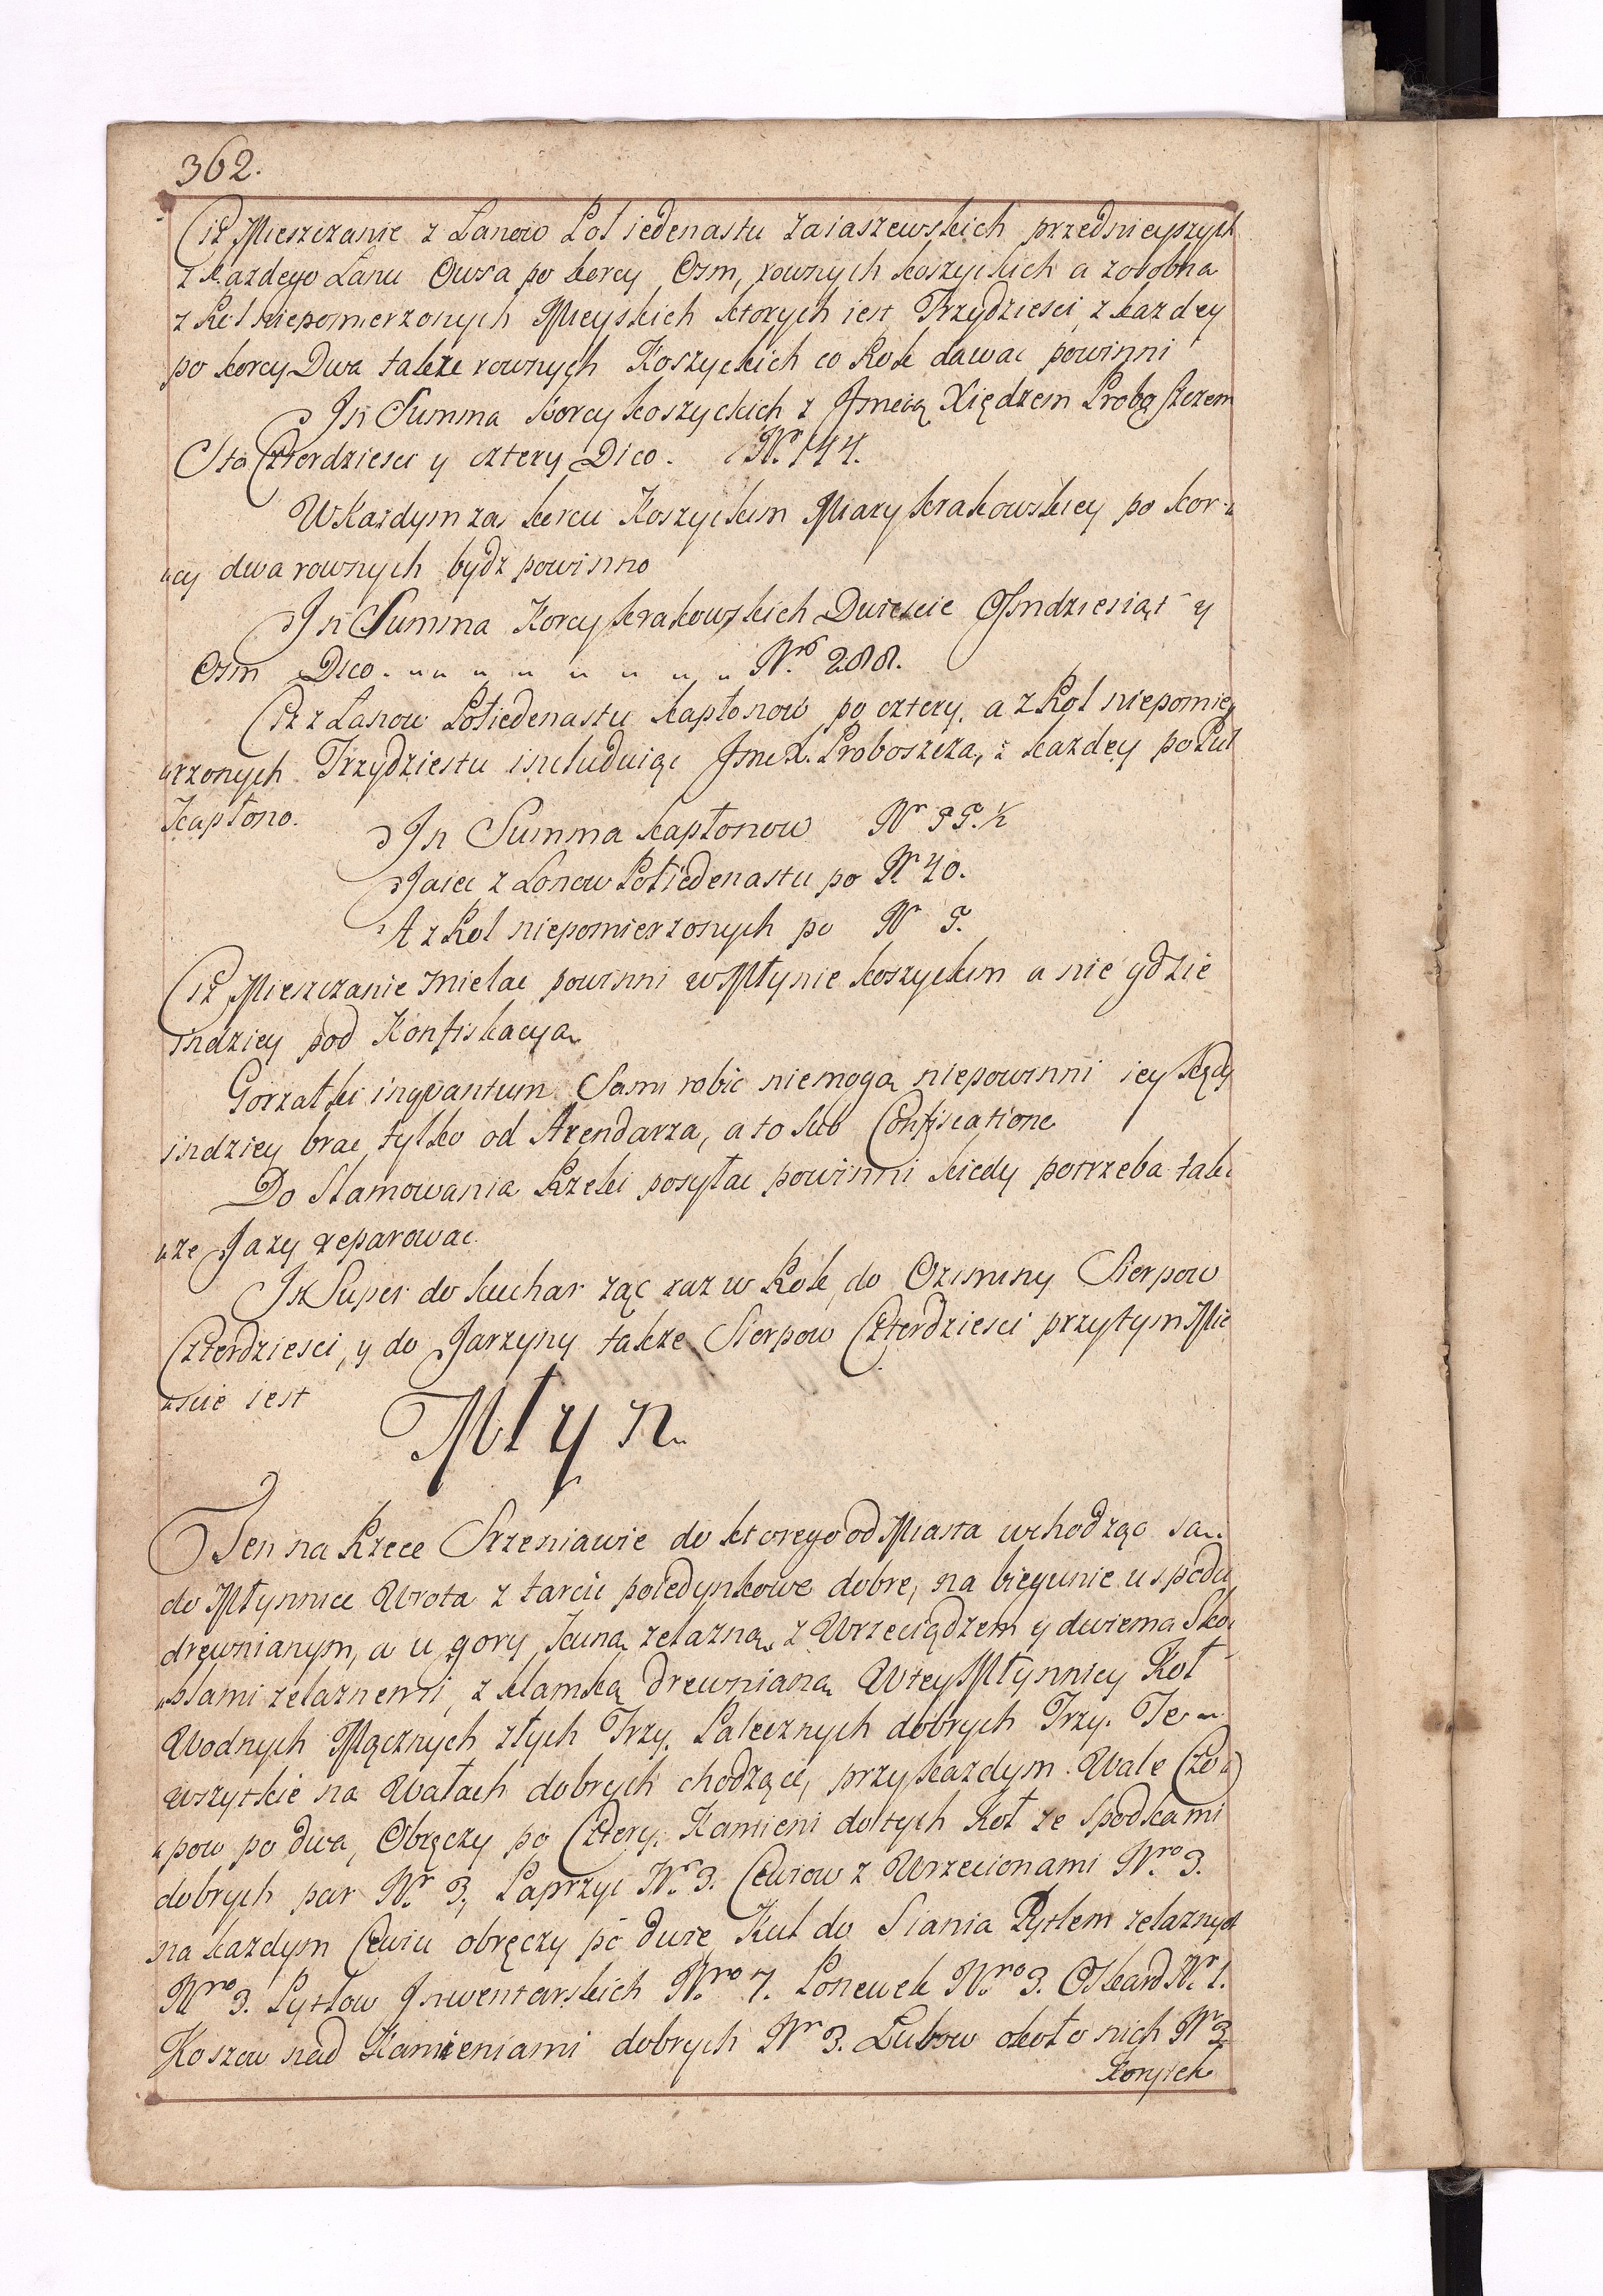 362.
Ciż Mieszczanie z Lanow Poł iedenastu Zaiaszewskich przednieyszych
z każdego Lanu Owsa po korcy Osm, rownych koszyckich a zosobna
z Rol niepomierzonych Mieyskich ktorych iest Trzydziesci, z każdey
po korcy Dwa także rownych Koszyckich co Rok dawac powinni
In Summa korcy koszyckich z Jmcią Xiędzem Proboszczem
Sto Czterdziesci y cztery Dico. Nr. 144.
W Każdym zas korcu Koszyckim Miary krakowskiey po kor-
cy dwa rownych bydz powinno
In Summa Korcy krakowskich Dwiescie Osmdziesiąt y
Osm Dico. Nro. 288.
Ciż z Lanow Połiedenastu kapłonow po cztery, a z Rol niepomie
rzonych Trzydziestu includuiąc JmcX. Proboszcza, z każdey po Puł
Kapłono.
In Summa kapłonow Nr 55.½
Jaiec z Lanow Połiedenastu po Nr 40.
A z Rol niepomierzonych po Nr 5.
Ciż Mieszczanie mielac powinni w Młynie koszyckim a nie gdzie
indziey pod Konfiskacyą
Gorzałki inqvantum Sami robic niemogą niepowinni iey kędy
indziey brac tylko od Arendarza, a to sub Confiscatione
Do Stamowania Rzeki posyłac powinni kiedy potrzeba tak
że Jazy reparowac.
In Super do kuchar żąc raz w Rok, do Oziminy Sierpow
Czterdziesci, y do Jarzyny także Sierpow Czterdziesci przytym Mie
scie iest
Młyn
Ten na Rzece Srzeniawie do ktorego od Miasta wchodząc są
do Młynnice Wrota z tarcic poiedynkowe dobre, na biegunie u spodu
drewnianym, a u gory kuną żelazną z Wrzeciądzem y dwiema Sko
blami żelaznemi, z klamką drewnianą W tey Młynnicy Koł
Wodnych Mącznych złych Trzy. Palecznych dobrych Trzy. Te
wszytkie na Wałach dobrych chodzące, przy każdym Wale Czo
pow po dwa, Obręczy po Cztery. Kamieni do tych Koł ze Spodkami
dobrych par Nr. 3, Paprzyc Nr. 3. Cewiow z Wrzecionami Nro. 3.
na każdym Cewiu obręczy po dwie Kul do Siania Pytlem żelaznych
Nro. 3. Pytlow Inwentarskich Nro. 7. Ponewek Nro. 3. Oskard Nr. 1.
Koszow nad Kamieniami dobrych Nr 3. Lubow około nich Nr 3